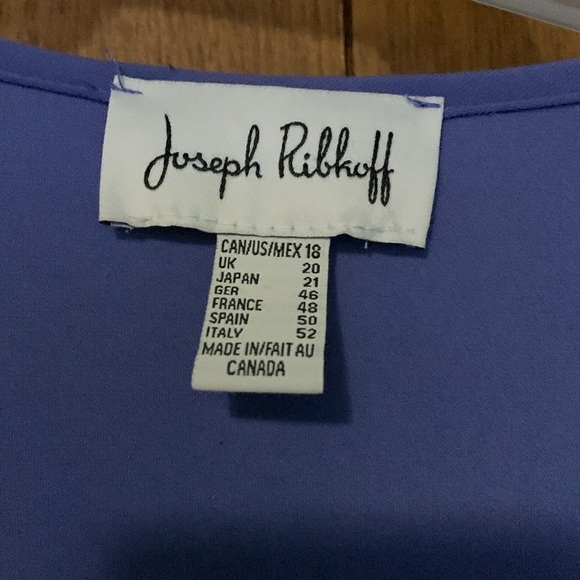 Joseph Ribkoff
CAN/US/MEX 18
UK 20
JAPAN 21
GER 46
FRANCE 48
SPAIN 50
ITALY 52
MADE IN/FAIT AU
CANADA